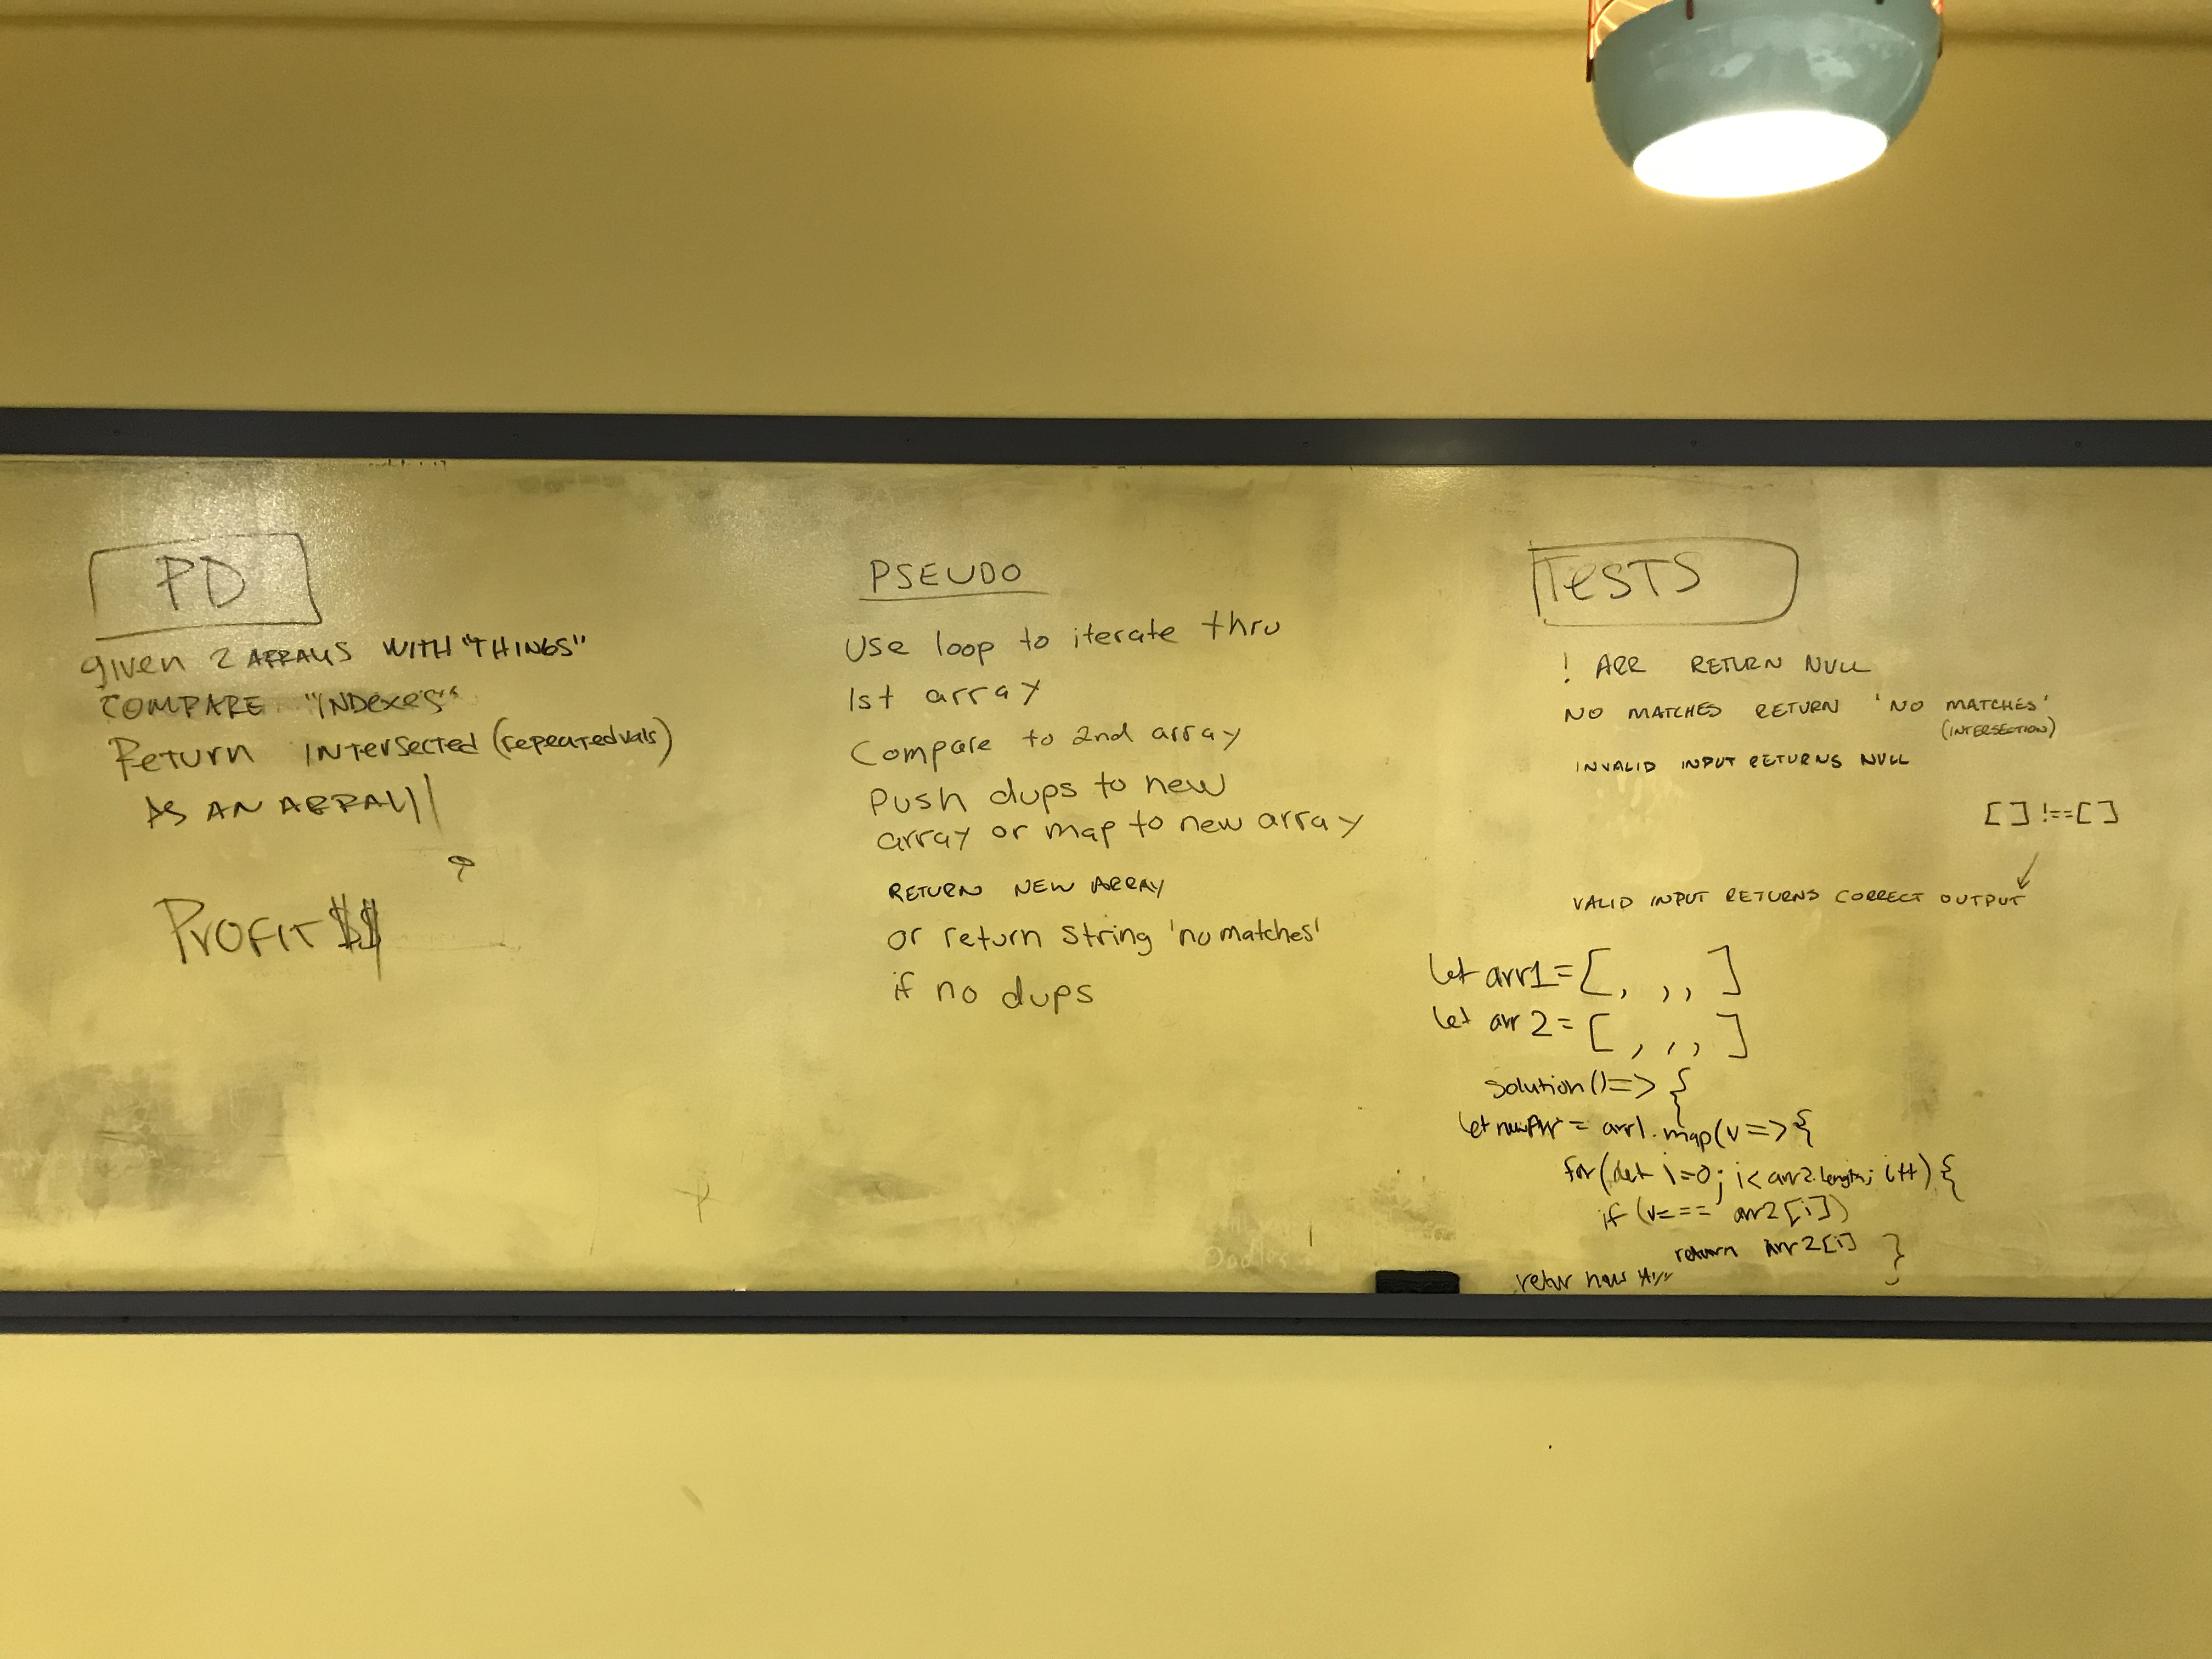 PD
given 2 ARRAYS WITH "THINGS"
COMPARE "INDexes"
Return INTersected (repeatedvals)
AS AN ARRAY
PrOFIT $$
PSEUDO
Use loop to iterate thru
1st array
Compare to 2nd array
Push dups to new
array or map to new array
RETURN NEW ARRAY
or return string 'no matches'
if no dups
TeSTS
! ARR RETURN NULL
NO MATCHES RETURN 'NO MATCHES'
(INTERSECTION)
INVALID INPUT RETURNS NULL
[ ] !== [ ]
VALID INPUT RETURNS CORRECT OUTPUT
let arr1 = [ , , , ]
let arr2 = [ , , , ]
solution () => {
let newArr = arr1.map(v => {
for (let i=0; i< arr2.length; i++) {
if (v === arr2[i])
return arr2[i] }
retur new Arr